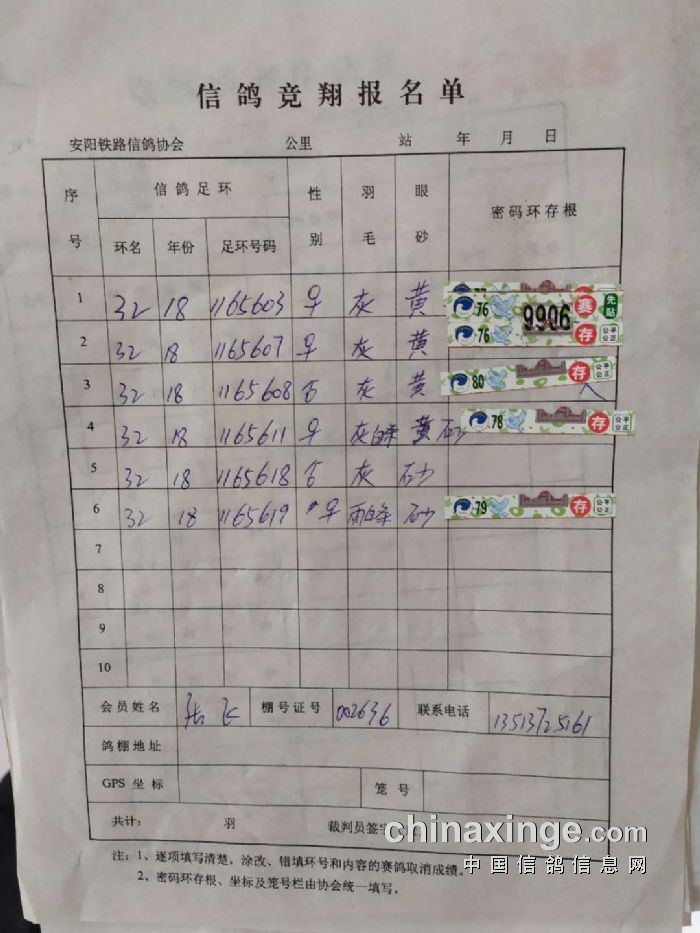 信鸽竞翔报名单
安阳铁路信鸽协会 公里 站 年 月 日
序号 信鸽足环 性别 羽毛 眼砂 密码环存根
环名 年份 足环号码
1 32 18 1165603 灰 黄
76 9906 赛 先贴
2 32 18 1165607 灰 黄 76 存 公平公正
3 32 18 1165608 灰 黄 80 存 公平公正
4 32 18 1165611 灰白条 黄砂 78 存 公平公正
5 32 18 1165618 灰 砂
6 32 18 1165619 雨白条 砂 79 存 公平公正
7
8
9
10
会员姓名 张飞 棚号证号 002636 联系电话 13513725161
鸽棚地址
GPS 坐标 笼号
共计: 羽 裁判员签字
注:1、逐项填写清楚,涂改、错填环号和内容的赛鸽取消成绩。
2、密码环存根、坐标及笼号栏由协会统一填写。
chinaxinge.com
中国信鸽信息网